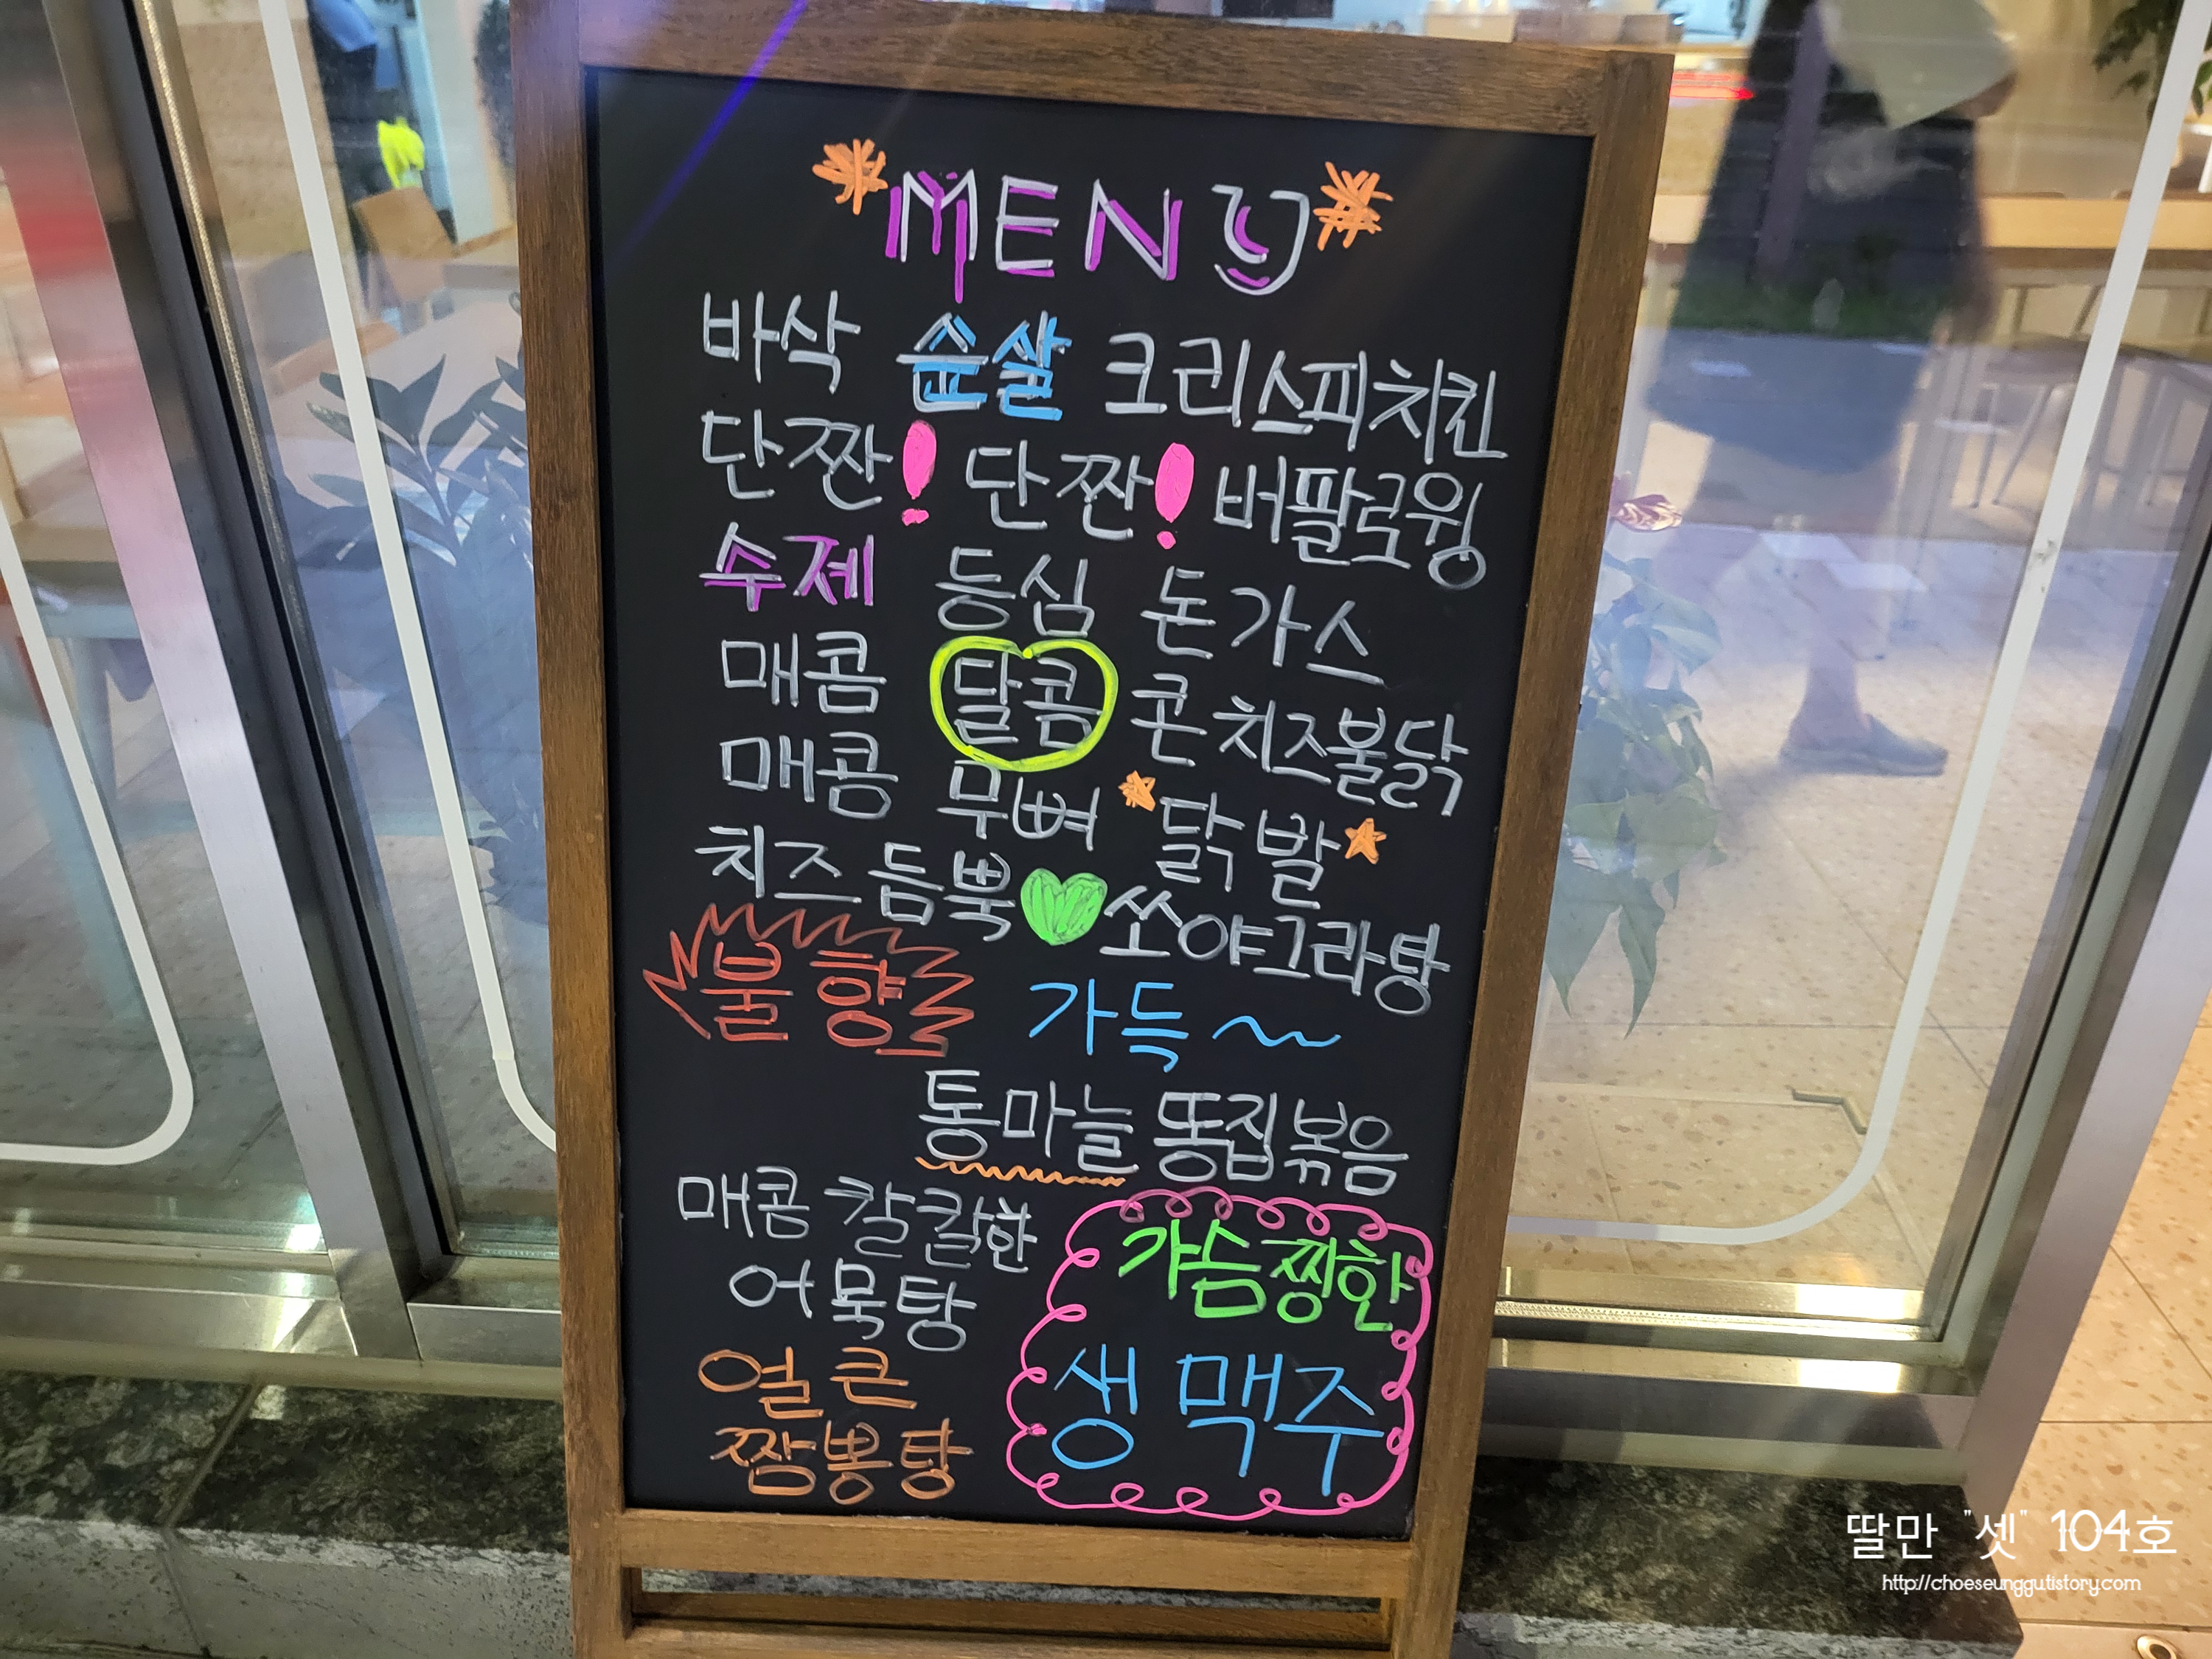 MENU
바삭 순살 크리스피치킨
단짠! 단짠! 버팔로윙
수제 등심 돈가스
매콤 달콤 콘치즈불닭
매콤 무뼈 닭발
치즈듬뿍 쏘야그라탕
불향 가득~
통마늘 똥집볶음
매콤 칼칼한
어묵탕
얼큰
짬뽕탕
가슴찡한
생맥주
딸만 "셋" 104호
http://choeseunggutistory.com